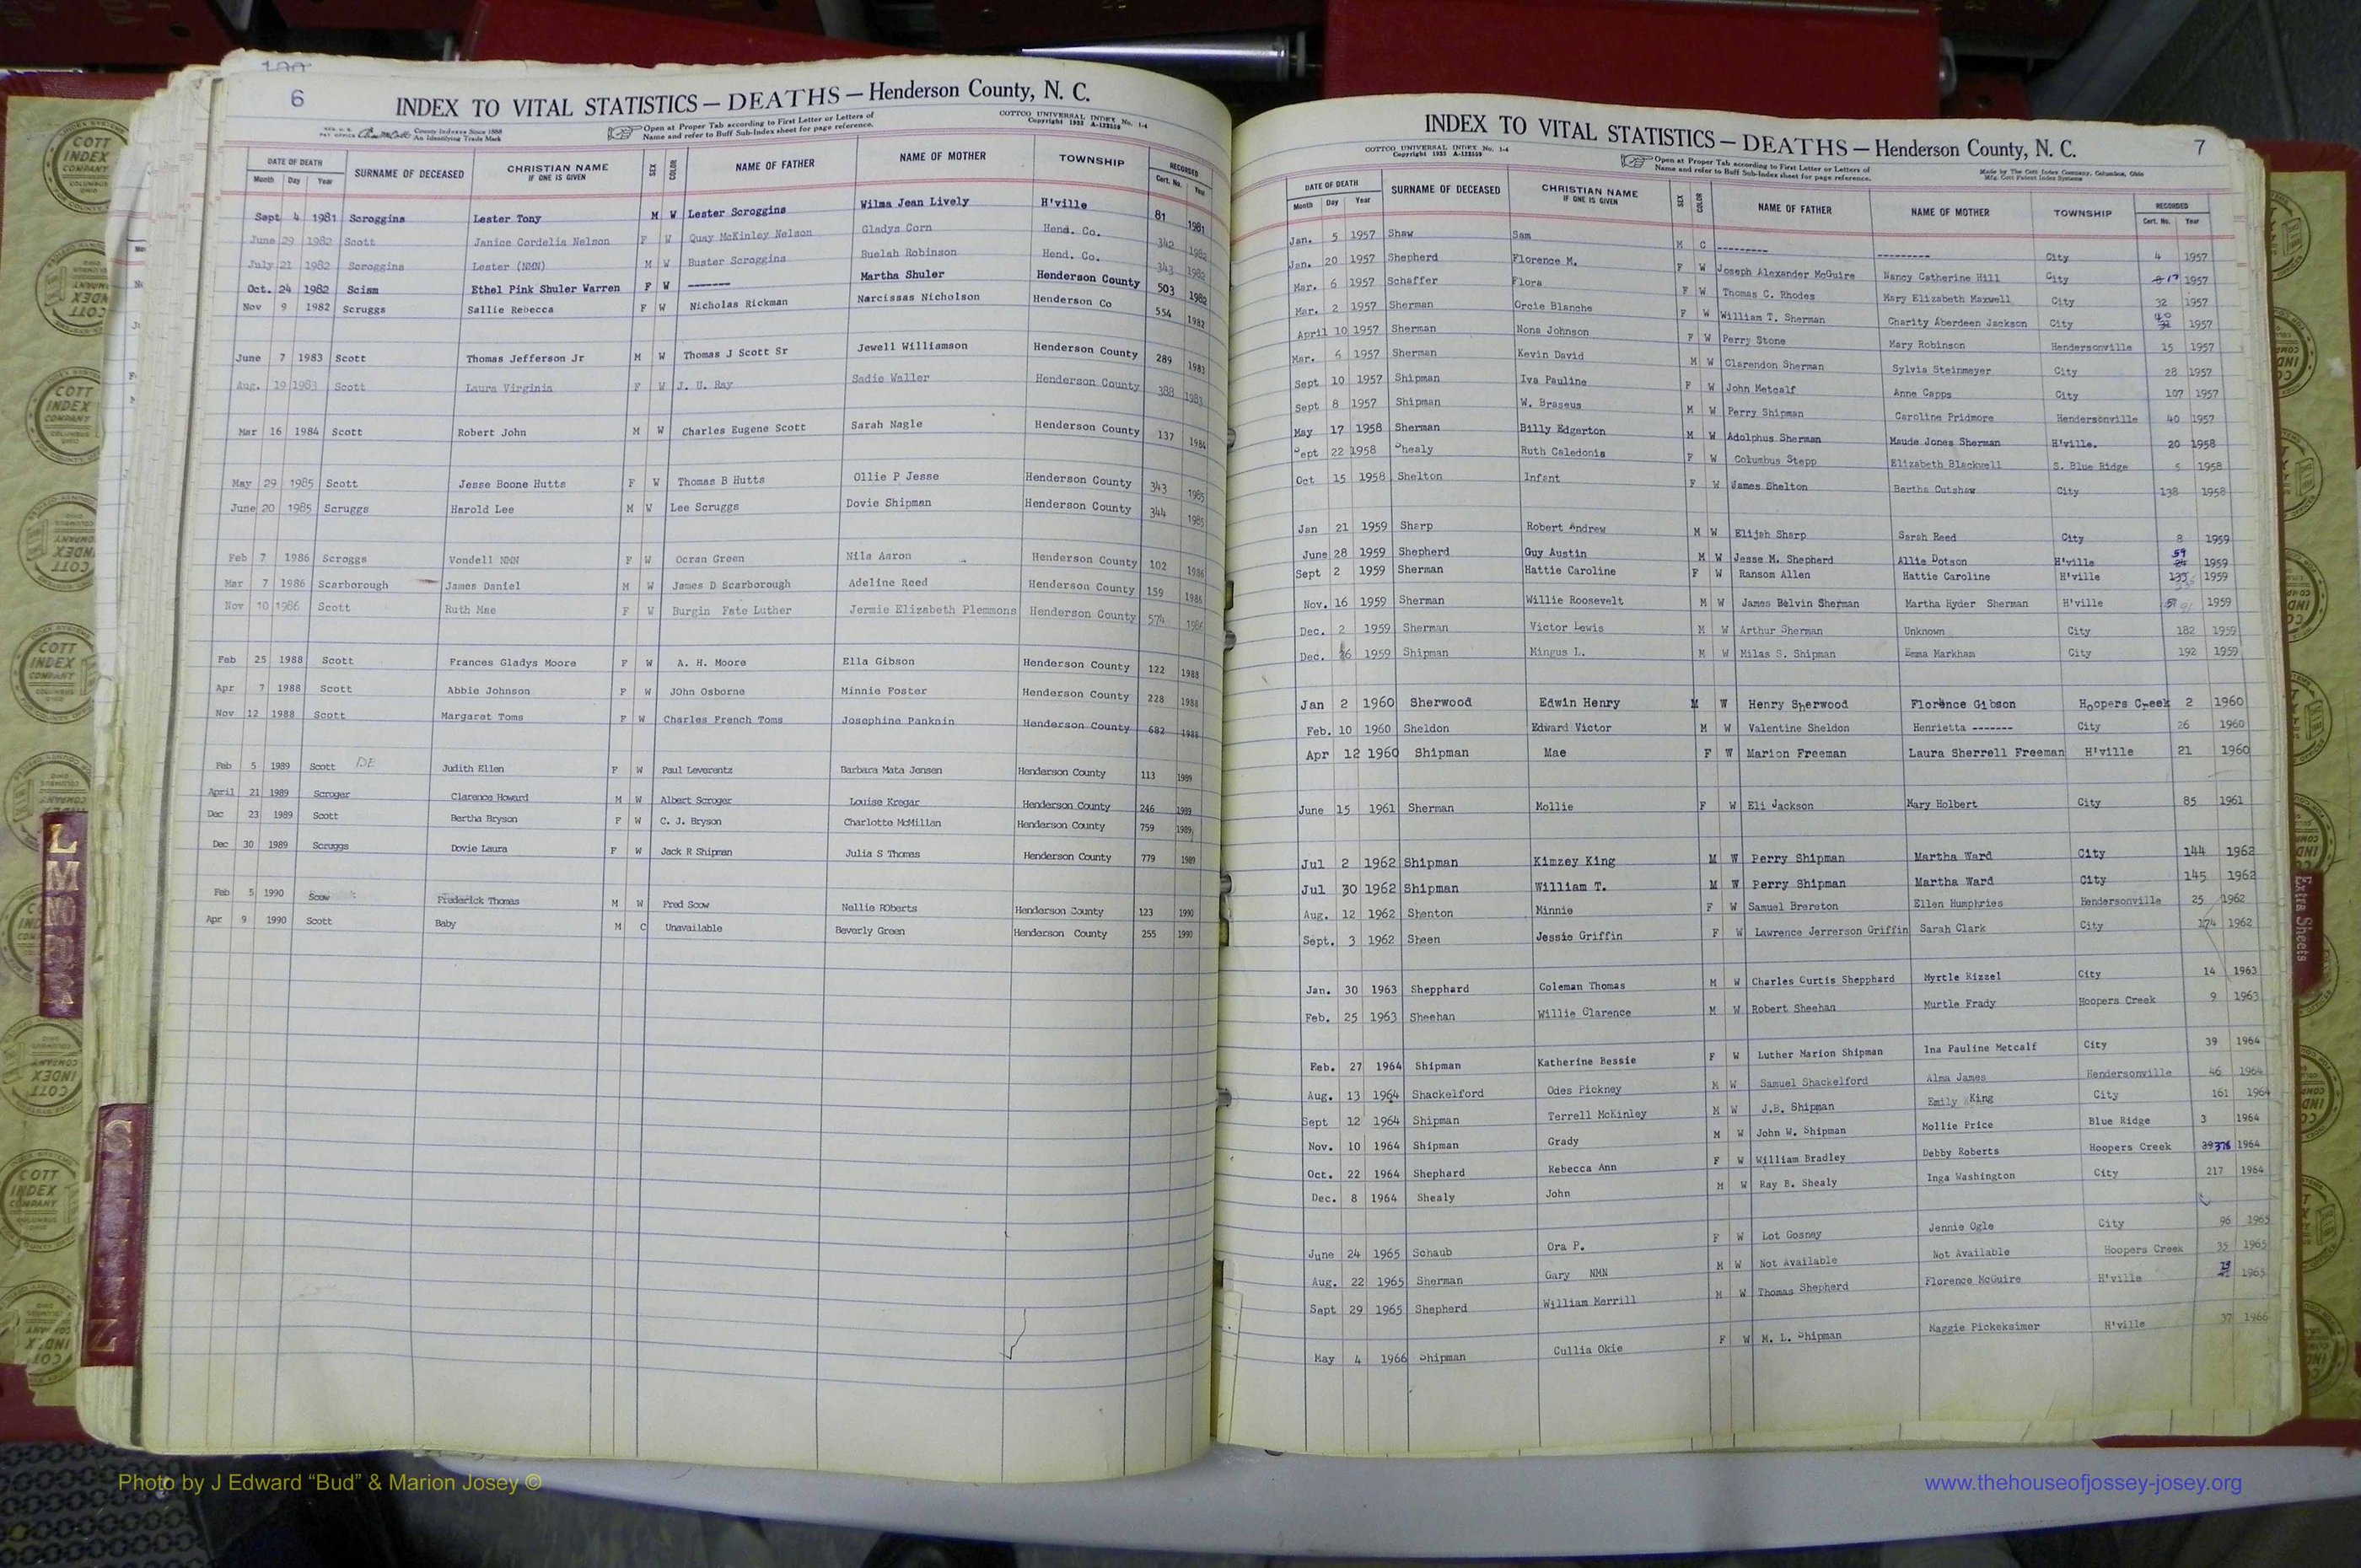 6
INDEX TO VITAL STATISTICS — DEATHS — Henderson County, N. C.
County Indexes Since 1888
An Identifying Trade Mark
Open at Proper Tab according to First Letter or Letters of
Name and refer to Buff Sub-Index sheet for page reference.
COTTCO UNIVERSAL INDEX No. 1-4
Copyright 1933 A-122559
DATE OF DEATH Month Day Year SURNAME OF DECEASED CHRISTIAN NAME IF ONE IS GIVEN SEX COLOR NAME OF FATHER NAME OF MOTHER TOWNSHIP RECORDED Cert. No. Year
Sept 4 1981 Scroggins Lester Tony M W Lester Scroggins Wilma Jean Lively H'ville 81 1981
June 29 1982 Scott Janice Cordelia Nelson F W Quay McKinley Nelson Gladys Corn Hend. Co. 342 1982
July 21 1982 Scroggins Lester (NMN) M W Buster Scroggins Buelah Robinson Hend. Co. 343 1982
Oct. 24 1982 Scism Ethel Pink Shuler Warren F W ------- Martha Shuler Henderson County 503 1982
Nov 9 1982 Scruggs Sallie Rebecca F W Nicholas Rickman Narcissas Nicholson Henderson Co 554 1982
June 7 1983 Scott Thomas Jefferson Jr M W Thomas J Scott Sr Jewell Williamson Henderson County 289 1983
Aug. 19 1983 Scott Laura Virginia F W J. U. Ray Sadie Waller Henderson County 388 1983
Mar 16 1984 Scott Robert John M W Charles Eugene Scott Sarah Nagle Henderson County 137 1984
May 29 1985 Scott Jesse Boone Hutts F W Thomas B Hutts Ollie P Jesse Henderson County 343 1985
June 20 1985 Scruggs Harold Lee M W Lee Scruggs Dovie Shipman Henderson County 344 1985
Feb 7 1986 Scroggs Vondell NMN F W Ocran Green Nila Aaron Henderson County 102 1986
Mar 7 1986 Scarborough James Daniel M W James D Scarborough Adeline Reed Henderson County 159 1986
Nov 10 1986 Scott Ruth Mae F W Burgin Fate Luther Jermie Elizabeth Plemmons Henderson County 574 1986
Feb 25 1988 Scott Frances Gladys Moore F W A. H. Moore Ella Gibson Henderson County 122 1988
Apr 7 1988 Scott Abbie Johnson F W JOhn Osborne Minnie Foster Henderson County 228 1988
Nov 12 1988 Scott Margaret Toms F W Charles French Toms Josephine Panknin Henderson County 682 1988
Feb 5 1989 Scott DE Judith Ellen F W Paul Leverentz Barbara Mata Jensen Henderson County 113 1989
April 21 1989 Scroger Clarence Howard M W Albert Scroger Louise Kregar Henderson County 246 1989
Dec 23 1989 Scott Bertha Bryson F W C. J. Bryson Charlotte McMillan Henderson County 759 1989
Dec 30 1989 Scruggs Dovie Laura F W Jack R Shipman Julia S Thomas Henderson County 779 1989
Feb 5 1990 Scow Frederick Thomas M W Fred Scow Nellie ROberts Henderson County 123 1990
Apr 9 1990 Scott Baby M C Unavailable Beverly Green Henderson County 255 1990
INDEX TO VITAL STATISTICS — DEATHS — Henderson County, N. C. 7
COTTCO UNIVERSAL INDEX No. 1-4
Copyright 1933 A-122559
Open at Proper Tab according to First Letter or Letters of
Name and refer to Buff Sub-Index sheet for page reference.
Made by The Cott Index Company, Columbus, Ohio
Mfg. Cott Patent Index Systems
DATE OF DEATH Month Day Year SURNAME OF DECEASED CHRISTIAN NAME IF ONE IS GIVEN SEX COLOR NAME OF FATHER NAME OF MOTHER TOWNSHIP RECORDED Cert. No. Year
Jan. 5 1957 Shaw Sam M C --------- --------- City 4 1957
Jan. 20 1957 Shepherd Florence M. F W Joseph Alexander McGuire Nancy Catherine Hill City 17 1957
Mar. 6 1957 Schaffer Flora F W Thomas C. Rhodes Mary Elizabeth Maxwell City 32 1957
Mar. 2 1957 Sherman Orcie Blanche F W William T. Sherman Charity Aberdeen Jackson City 40 1957
April 10 1957 Sherman Nona Johnson F W Perry Stone Mary Robinson Hendersonville 15 1957
Mar. 6 1957 Sherman Kevin David M W Clarendon Sherman Sylvia Steinmeyer City 28 1957
Sept 10 1957 Shipman Iva Pauline F W John Metcalf Anne Capps City 107 1957
Sept 8 1957 Shipman W. Braseus M W Perry Shipman Caroline Pridmore Hendersonville 40 1957
May 17 1958 Sherman Billy Edgerton M W Adolphus Sherman Maude Jones Sherman H'ville. 20 1958
Sept 22 1958 Shealy Ruth Caledonia F W Columbus Stepp Elizabeth Blackwell S. Blue Ridge 5 1958
Oct 15 1958 Shelton Infant F W James Shelton Bertha Cutshaw City 138 1958
Jan 21 1959 Sharp Robert Andrew M W Elijah Sharp Sarah Reed City 8 1959
June 28 1959 Shepherd Guy Austin M W Jesse M. Shepherd Allie Dotson H'ville 59 1959
Sept 2 1959 Sherman Hattie Caroline F W Ransom Allen Hattie Caroline H'ville 135 1959
Nov. 16 1959 Sherman Willie Roosevelt M W James Belvin Sherman Martha Hyder Sherman H'ville 91 1959
Dec. 2 1959 Sherman Victor Lewis M W Arthur Sherman Unknown City 182 1959
Dec. 26 1959 Shipman Mingus L. M W Milas S. Shipman Emma Markham City 192 1959
Jan 2 1960 Sherwood Edwin Henry M W Henry Sherwood Florence Gibson Hoopers Creek 2 1960
Feb. 10 1960 Sheldon Edward Victor M W Valentine Sheldon Henrietta ------- City 26 1960
Apr 12 1960 Shipman Mae F W Marion Freeman Laura Sherrell Freeman H'ville 21 1960
June 15 1961 Sherman Mollie F W Eli Jackson Mary Holbert City 85 1961
Jul 2 1962 Shipman Kimzey King M W Perry Shipman Martha Ward City 144 1962
Jul 30 1962 Shipman William T. M W Perry Shipman Martha Ward City 145 1962
Aug. 12 1962 Shenton Minnie F W Samuel Brereton Ellen Humphries Hendersonville 25 1962
Sept. 3 1962 Sheen Jessie Griffin F W Lawrence Jerrerson Griffin Sarah Clark City 174 1962
Jan. 30 1963 Shepphard Coleman Thomas M W Charles Curtis Shepphard Myrtle Rizzel City 14 1963
Feb. 25 1963 Sheehan Willie Clarence M W Robert Sheehan Murtle Frady Hoopers Creek 9 1963
Feb. 27 1964 Shipman Katherine Bessie F W Luther Marion Shipman Ina Pauline Metcalf City 39 1964
Aug. 13 1964 Shackelford Odes Pickney M W Samuel Shackelford Alma James Hendersonville 46 1964
Sept 12 1964 Shipman Terrell McKinley M W J.B. Shipman Emily King City 161 1964
Nov. 10 1964 Shipman Grady M W John W. Shipman Mollie Price Blue Ridge 3 1964
Oct. 22 1964 Shephard Rebecca Ann F W William Bradley Debby Roberts Hoopers Creek 1964
Dec. 8 1964 Shealy John M W Ray B. Shealy Inga Washington City 217 1964
June 24 1965 Schaub Ora P. F W Lot Gosney Jennie Ogle City 96 1965
Aug. 22 1965 Sherman Gary NMN M W Not Available Not Available Hoopers Creek 35 1965
Sept 29 1965 Shepherd William Merrill M W Thomas Shepherd Florence McGuire H'ville 1965
May 4 1966 Shipman Cullia Okie F W M. L. Shipman Maggie Pickeksimer H'ville 37 1966
Extra Sheets
Photo by J Edward “Bud” & Marion Josey ©
www.thehouseofjossey-josey.org